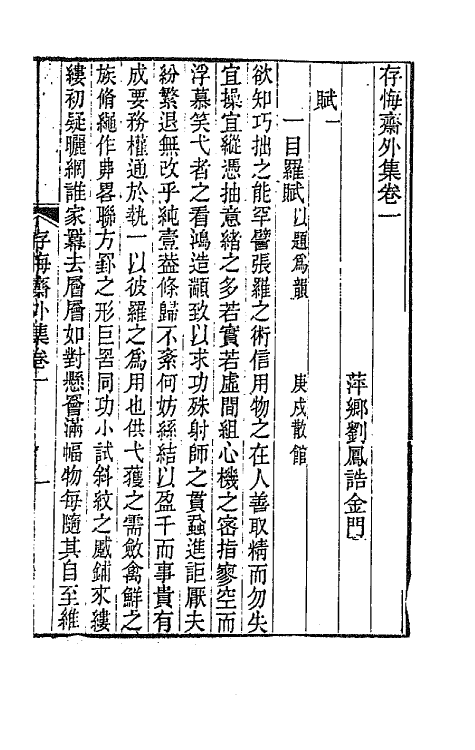 存悔齋外集卷一
萍鄉劉鳳誥金門
賦一
一目羅賦以題爲韻　庚戌散館
欲知巧拙之能罕譬張羅之術信用物之在人善取精而勿失
宜操宜縱憑抽意緒之多若實若虛間組心機之密指寥空而
浮慕笑弋者之看鴻造顓致以求功殊射師之貫蝨進詎厭夫
紛繁退無改乎純壹葢條歸不紊何妨絲結以盈千而事貴有
成要務權通於執一以彼羅之爲用也供弋獲之需斂禽鮮之
族脩繩作畀畧聯方罫之形巨罟同功小試斜紋之蹙鋪來縷
縷初疑曬網誰家羃去層層如對懸罾滿幅物每隨其自至維
存悔齋外集卷一
一